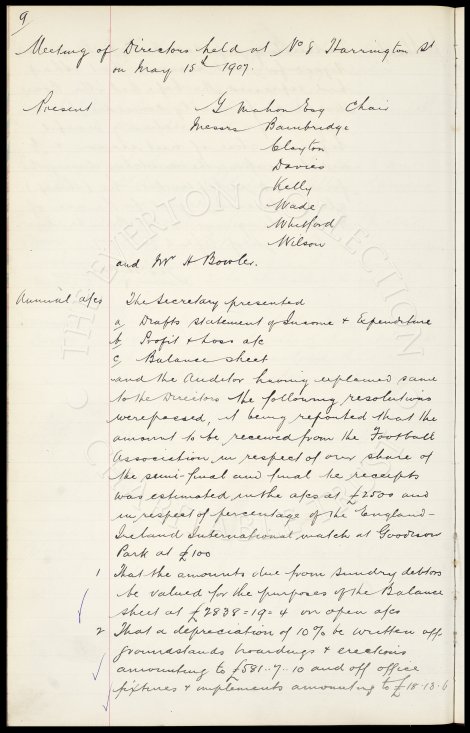 9
Meeting of Directors held at No 8 Harrington St
on May 15th 1907.
Present G Mahon Esq Chair
Messrs Bainbridge
Clayton
Davies
Kelly
Wade
Whitford
Wilson
and Mr H Bowler.
Annual a/cs The Secretary presented
a, Drafts statement of Income & Expenditure
b, Profit & Loss a/c
c, Balance sheet
and the Auditor having explained same
to the Directors the following resolutions
were passed, it being reported that the
amount to be received from the Football
Association in respect of our share of
the semi-final and final tie receipts
was estimated in the a/cs at £2500 and
in respect of percentage of the England-
Ireland International match at Goodison
Park at £100
1 That the amounts due from sundry debtors
be valued for the purposes of the Balance
sheet at £2838=19=4 on open a/cs
2 That a depreciation of 10% be written off
groundstands hoardings & erections
amounting to £581..7..10 and off office
fixtures & implements amounting to £18.13.6
THE EVERTON COLLECTION